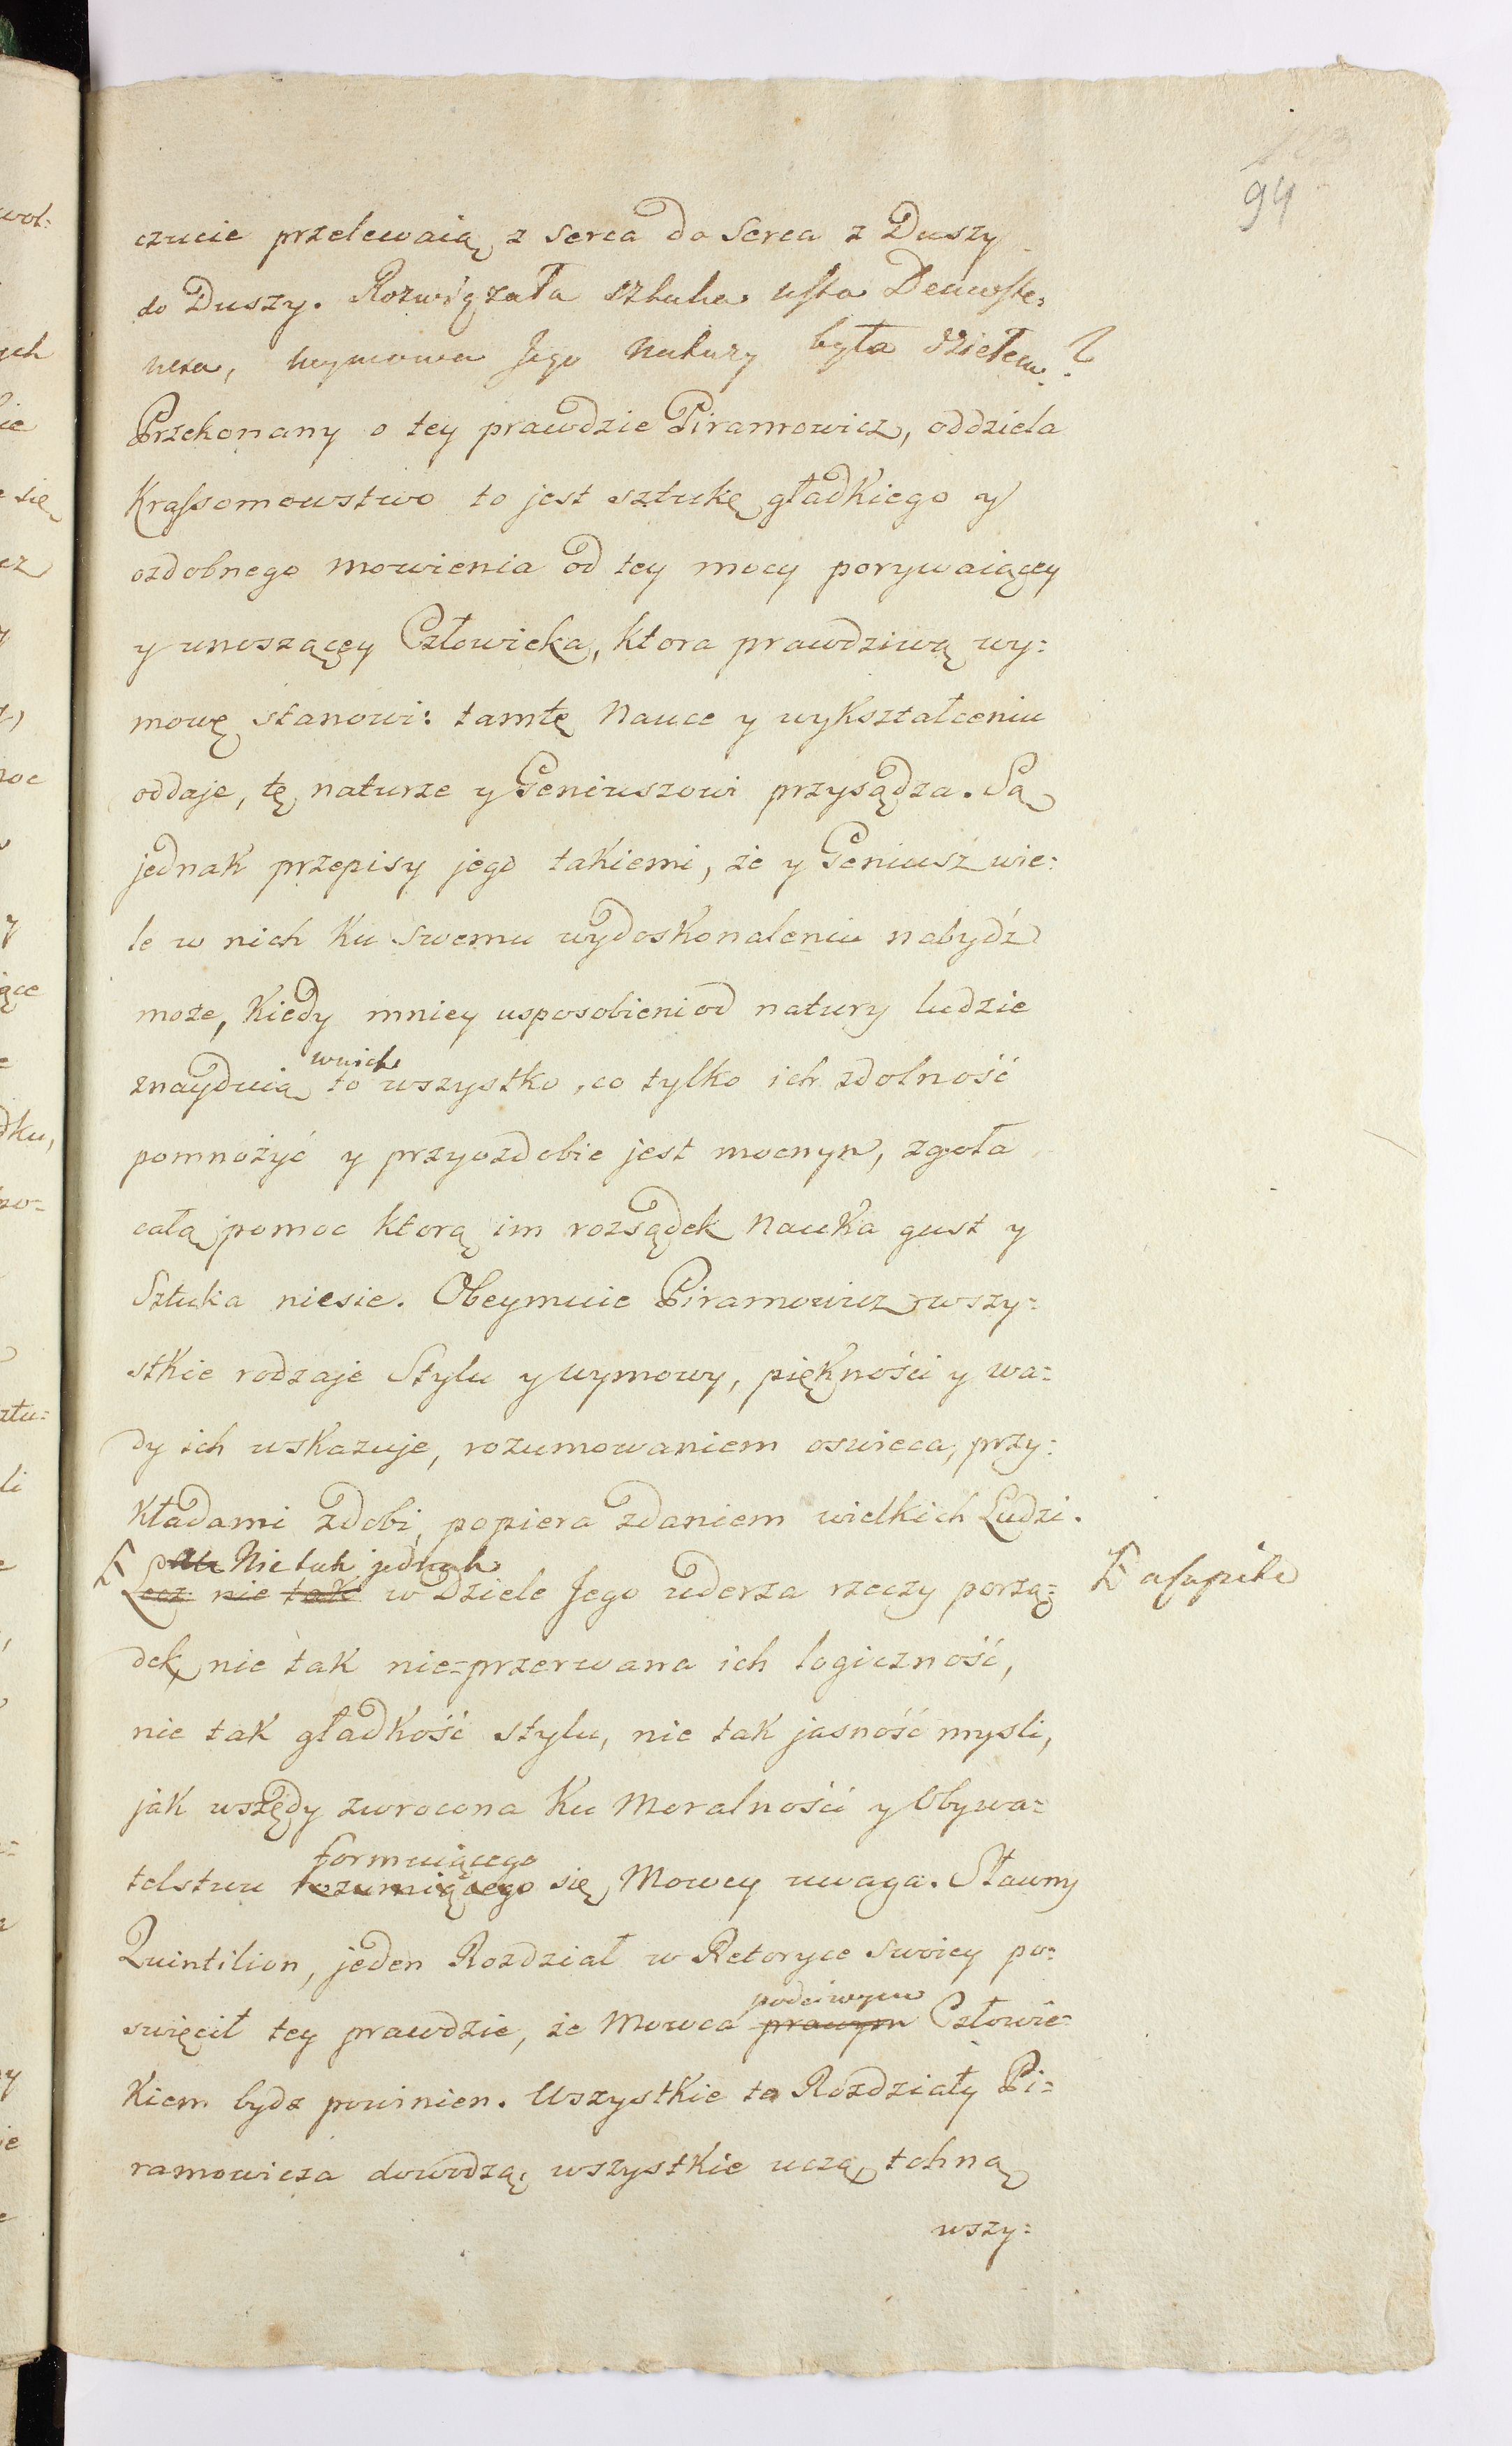 103
94
czucie przelewaią z serca do Serca z Duszy
do Duszy. Rozwiązała sztuka usta Demoste=
nesa, wymowa Jego Natury była dziełem?
Przekonany o tey prawdzie Piramowicz, oddziela
Krassomowstwo to jest sztukę gładkiego y
ozdobnego mowienia od tey mocy porywaiącey
y unoszącey Człowieka, ktora prawdziwą wy=
mowę stanowi: tamtę Nauce y wykształceniu
oddaje, tę naturze y Geniuszowi przysądza. Są
jednak przepisy jego takiemi, że y Geniusz wie=
le w nich ku swemu wydoskonaleniu nabydź
może, Kiedy mniey usposobieni od natury ludzie
w nich
znayduią to wszystko, co tylko ich zdolność
pomnożyć y przyozdobic jest mocnym, zgoła
całą pomoc ktorą im rozsądek Nauka gust y
Sztuka niesie. Obeymuie Piramowicz wszy=
stkie rodzaje Stylu y wymowy, piękności y wa=
dy ich wskazuje, rozumowaniem oswieca, przy=
kładami zdobi, popiera zdaniem wielkich Ludzi.
Nie tak jednak
Lecz nie tak w Dziele Jego uderza rzeczy porzą= a capite
dek, nie tak nie=przerwana ich logiczność,
nie tak gładkość stylu, nie tak jasność mysli,
jak wszędy zwrocona Ku Moralności y Obywa=
formuiącego
telstwu rozumiącego się Mowcy uwaga. Sławny
Quintilion, jeden Rozdział w Retoryce swoiey po=
poczciwym
swięcił tey prawdzie, że Mowca prawym Człowie=
kiem bydz powinien. Wszystkie to Rozdziały Pi=
ramowicza dowodzą, wszystkie uczą, tchną
wszy=